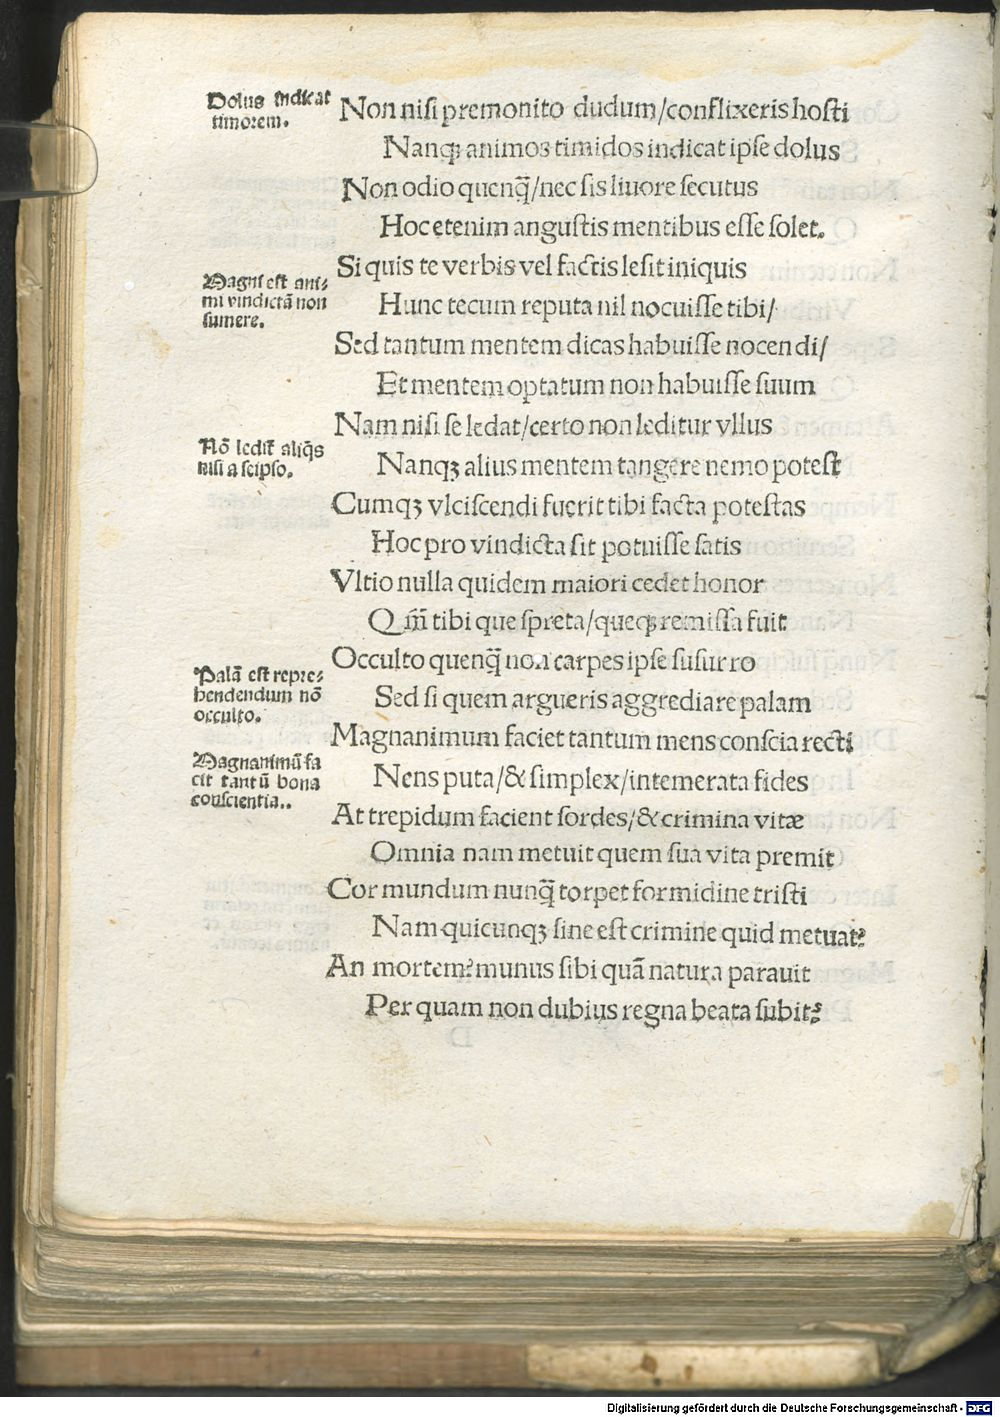 Dolus indicat
timorem.
Non nisi premonito dudum/conflixeris hosti
Nanqꝫ animos timidos indicat ipse dolus
Non odio quenq̃/nec sis liuore secutus
Hoc etenim angustis mentibus esse solet.
Magni est ani⸗
mi vindictã non
sumere.
Si quis te verbis vel factis lesit iniquis
Hunc tecum reputa nil nocuisse tibi/
Sed tantum mentem dicas habuisse nocendi/
Et mentem optatum non habuisse suum
Nõ ledit̃ aliq̃s
nisi a seipso.
Nam nisi se ledat/certo non leditur vllus
Nanqꝫ alius mentem tangere nemo potest
Cumqꝫ vlciscendi fuerit tibi facta potestas
Hoc pro vindicta sit potuisse satis
Vltio nulla quidem maiori cedet honor
Q m̃ tibi que spreta/queqꝫ remissa fuit
Palã est repre⸗
hendendum nõ
occulto.
Occulto quenq̃ non carpes ipse susurro
Sed si quem argueris aggrediare palam
Magnanimũ fa
cit tantũ bona
conscientia..
Magnanimum faciet tantum mens conscia recti
Nens puta/& simplex/intemerata fides
At trepidum facient sordes/& crimina vitæ
Omnia nam metuit quem sua vita premit
Cor mundum nunq̃ torpet formidine tristi
Nam quicunqꝫ sine est crimine quid metuat?
An mortem? munus sibi quã natura parauit
Per quam non dubius regna beata subit?
Digitalisierung gefördert durch die Deutsche Forschungsgemeinschaft - DFG